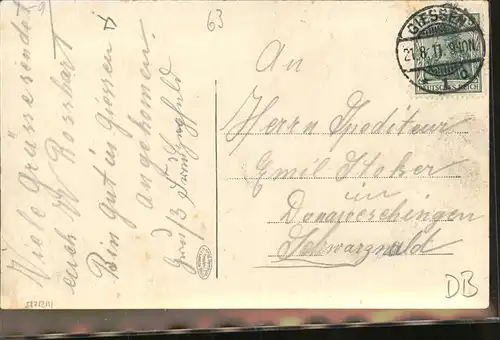 63
GIESSEN
21.8.11. 9-10N.
1 d
DEUTSCHES REICH
An
Herrn Spediteur
Emil Stoker
in
Donaueschingen
Schwarzwald
Viele Grüsse sendet
euch
Bin gut in Giessen
angekommen.
Gruß
DB